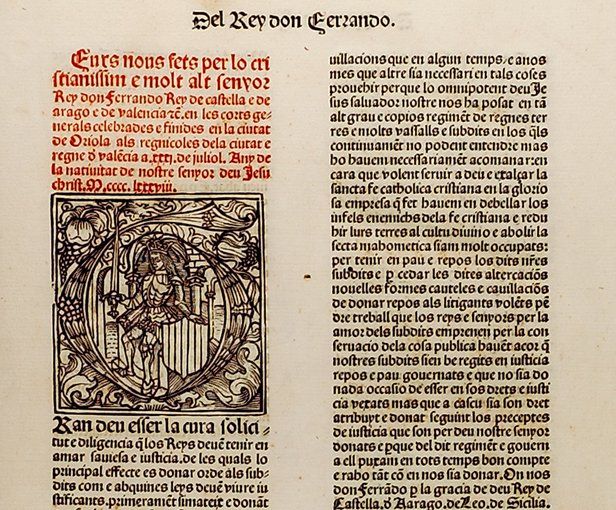 Del Rey don Ferrando.
Furs nous fets per lo cri
stianissim e molt alt senyor
Rey don Ferrando Rey de castella e de
arago e de valencia ⁊c̄. en les corts ge-
nerals celebrades e finides en la ciutat
de Oriola als regnicoles dela ciutat e
regne d̓ valẽcia a .xxxj. de juliol. Any de
la natiuitat de nostre senyor deu Jesu
christ. M. cccc. lxxxviij.
Ran deu esser la cura solici-
tut e diligencia q̃ los Reys deuẽ tenir en
amar sauiesa e iusticia. de les quals lo
principal effecte es donar orde als sub-
dits com e ab quines leys deuẽ viure iu
stificant. primeramẽt si mateix e donãt
uillacions que en algun temps, e anos
mes que altre sia necessari en tals coses
prouehir per que lo omnipotent deu Je
sus saluador nostre nos ha posat en tã
alt grau e copios regimẽt de regnes ter
res e molts vassalls e subdits en los q̃ls
continuamẽt no podent entendre mas
ho hauem necessariamẽt acomanar: en
cara que volent seruir a deu e exalçar la
sancta fe catholica cristiana en la glorio
sa empresa q̃ fet hauem en debellar los
infels enemichs dela fe cristiana e redu
hir lurs terres al cultu diuino e abolir la
secta mahometica siam molt occupats:
per tenir en pau e repos los dits nr̃es
subdits e ꝑ cedar les dites altercaciõs
nouelles formes cauteles e cauillaciõs
de donar repos als litigants volẽts pẽ
dre treball que los reys e senyors per la
amor dels subdits emprenen per la con
seruacio dela cosa publica hauẽt acor q̃
nostres subdits sien be regits en iusticia
repos e pau gouernats e que no sia do
nada occasio de esser en sos drets e iusti
cia vexats mas que a cascu sia son dret
atribuyt e donat seguint los preceptes
de iusticia que son per deu nostre senyor
donats e ꝑque del dit regimẽt e gouern
a ell puxam en tots temps bon compte
e raho tãt cõ en nos sia donar. On nos
don Ferrãdo ꝑ la gracia de deu Rey de
Castella. d̓ AragO. de Leo. de Sicilia.